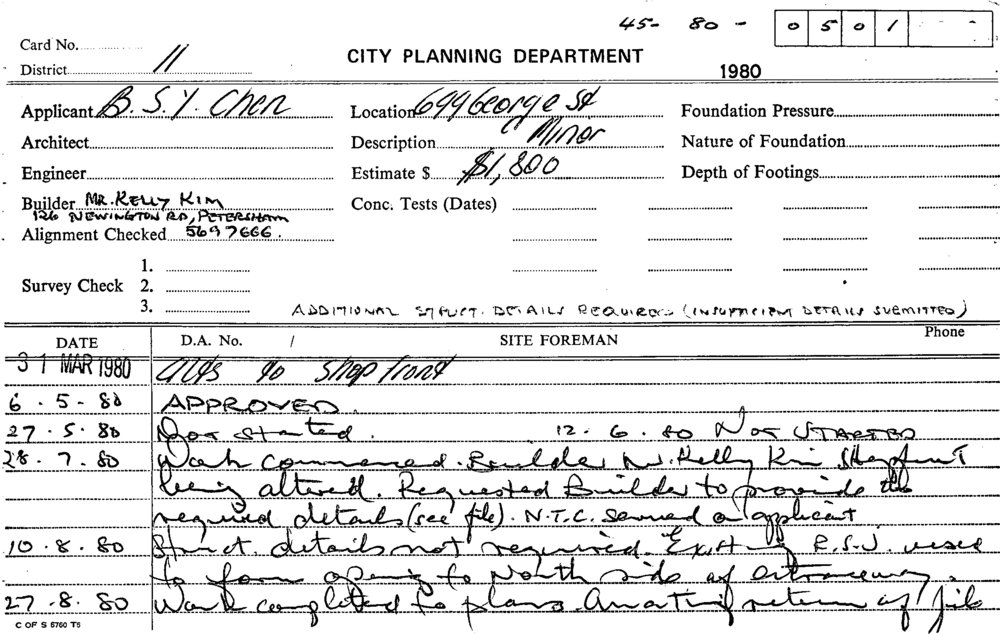 45- 80 - 0501
Card No.
District 11
CITY PLANNING DEPARTMENT
1980
Applicant B. S. Y. Chen
Location 699 George St
Foundation Pressure
Architect
Description Minor
Nature of Foundation
Engineer
Estimate $ $1,800
Depth of Footings
Builder MR. KELLY KIM
126 NEWINGTON RD, PETERSHAM
Conc. Tests (Dates)
Alignment Checked 569 7666.
1.
Survey Check 2.
3.
ADDITIONAL STRUCT. DETAILS REQUIRED (INSUFFICIENT DETAILS SUBMITTED)
DATE D.A. No. / SITE FOREMAN Phone
31 MAR 1980 Alts to shop front
6 . 5 . 80 APPROVED.
27 . 5 . 80 Not started. 12 . 6 . 80 NOT STARTED
28 . 7 . 80 Work commenced. Builder Mr. Kelly Kim Shopfront
being altered. Requested Builder to provide the
required details (see file). N.T.C. served on applicant
10 . 8 . 80 Struct. details not required. Existing R.S.J. used
to form opening to North side of entranceway.
27 . 8 . 80 Work completed to plans. Awaiting return of file
C OF S 5760 T5